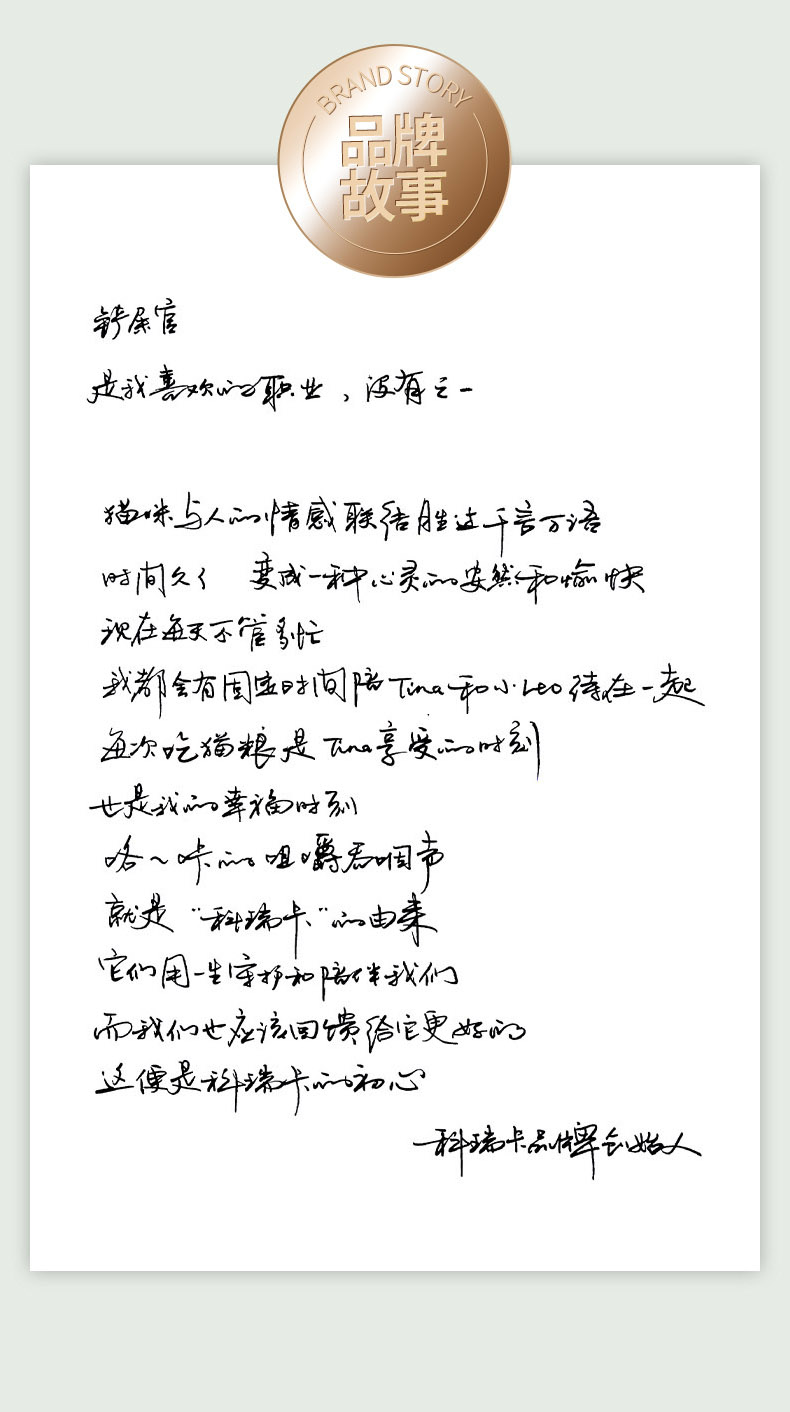 BRAND STORY
品牌
故事
铲屎官
是我喜欢的职业，没有之一
猫咪与人的情感联结胜过千言万语
时间久了 变成一种心灵的安然和愉快
现在每天不管多忙
我都会有固定时间陪Tina和小Leo待在一起
每次吃猫粮是Tina享受的时刻
也是我的幸福时刻
咯~咔的咀嚼声
就是“科瑞卡”的由来
它们用一生守护和陪伴我们
而我们也应该回馈给它更好的
这便是科瑞卡的初心
一科瑞卡品牌创始人